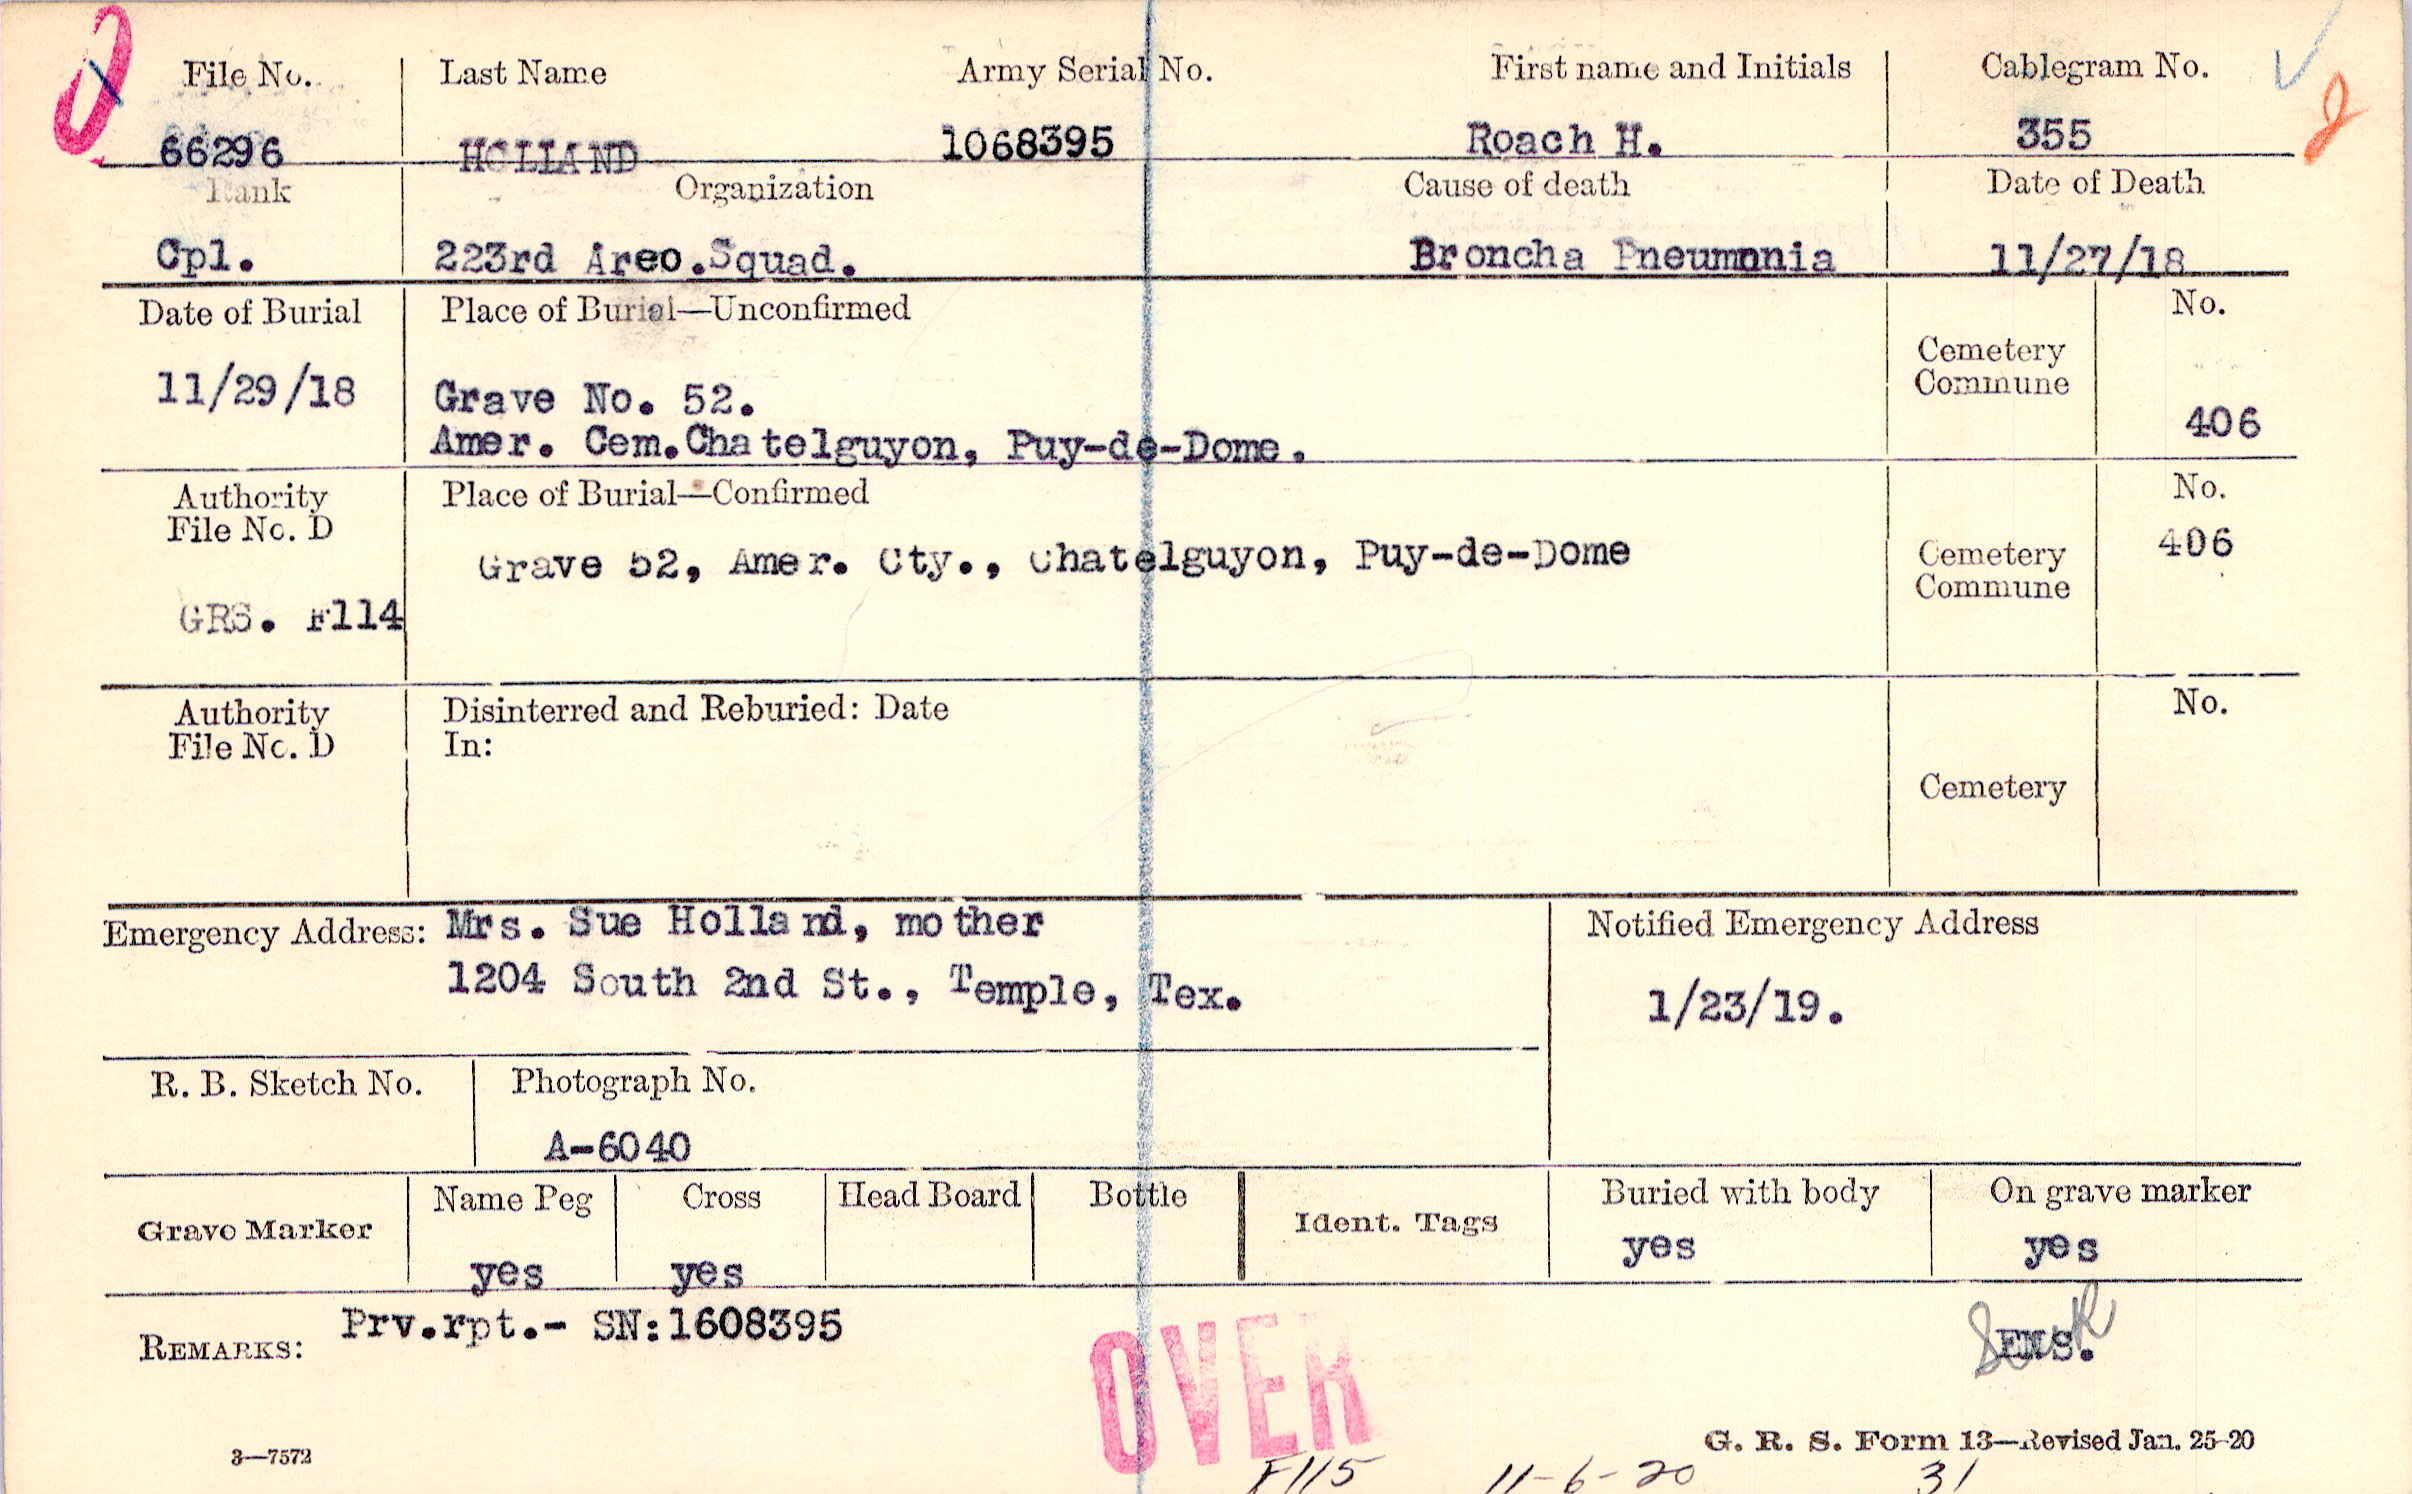 File No. Last Name Army Serial No. First name and Initials Cablegram No.
66296 HOLLAND 1068395 Roach H. 355
Rank Organization Cause of death Date of Death
Cpl. 223rd Areo.Squad. Broncha Pneumnnia 11/27/18
Date of Burial Place of Burial—Unconfirmed No.
Cemetery
Commune
11/29/18 Grave No. 52.
Amer. Cem.Chatelguyon, Puy-de-Dome. 406
Authority Place of Burial—Confirmed No.
File No. D
Grave 52, Amer. Cty., Chatelguyon, Puy-de-Dome Cemetery 406
Commune
GRS. F114
Authority Disinterred and Reburied: Date No.
File No. D In:
Cemetery
Emergency Address: Mrs. Sue Holland, mother Notified Emergency Address
1204 South 2nd St., Temple, Tex. 1/23/19.
R. B. Sketch No. Photograph No.
A-6040
Grave Marker Name Peg Cross Head Board Bottle Ident. Tags Buried with body On grave marker
yes yes yes yes
REMARKS: Prv.rpt.- SN:1608395
EMS.
OVER
3—7572 G. R. S. Form 13—Revised Jan. 25-20
F115 11-6-20 31